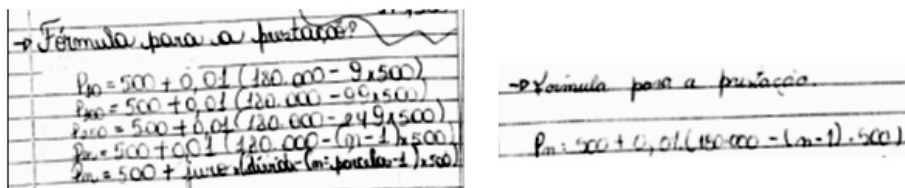 → Fórmula para a prestação?
P₁₀ = 500 + 0,01 (180.000 - 9x500)
P₁₀₀ = 500 + 0,01 (180.000 - 99x500)
P₂₅₀ = 500 + 0,01 (180.000 - 249x500)
Pn = 500 + 0,01 (180.000 - (n-1)x500)
Pn = 500 + juro x (dívida - (nº parcelas - 1) x 500)
→ Fórmula para a prestação.
Pn = 500 + 0,01.(180.000 - (n-1).500)